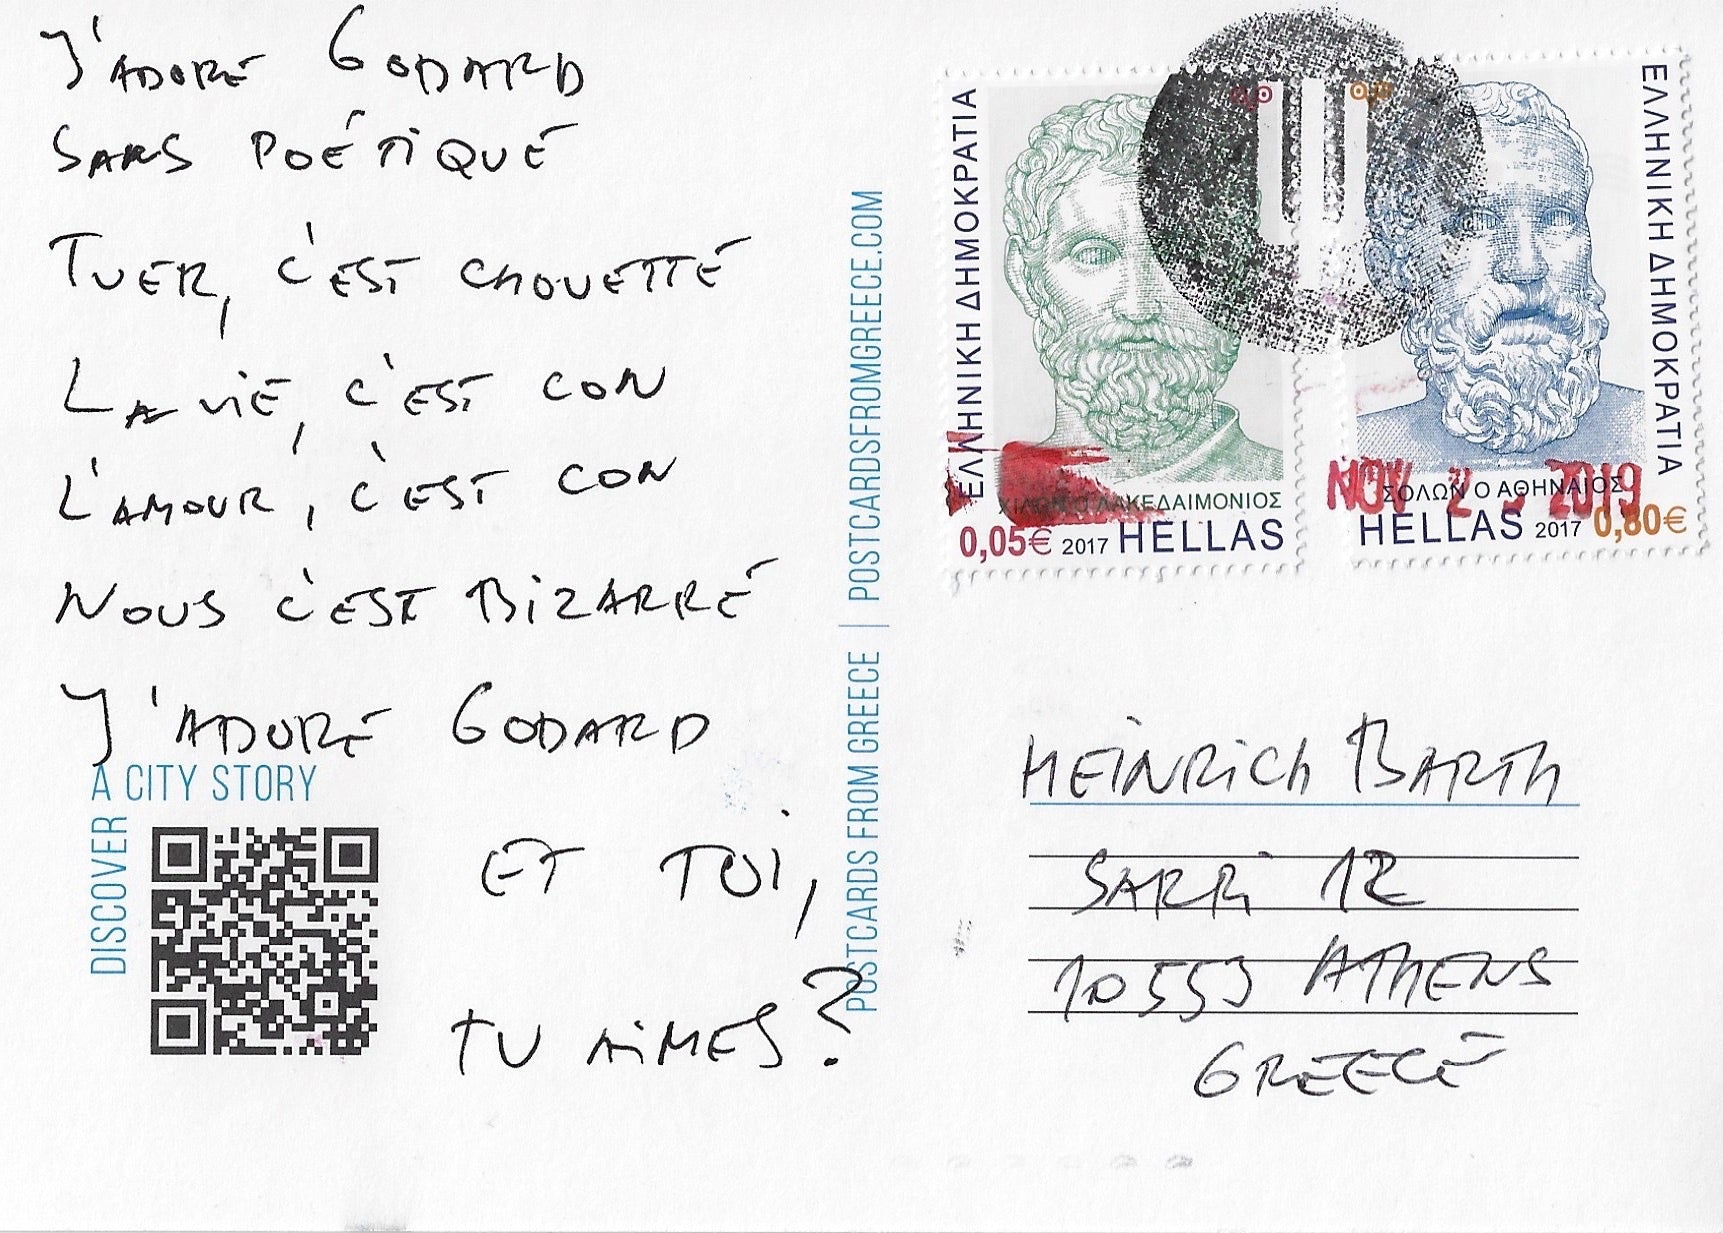 J'ADORE GODARD
SANS POÉTIQUE
TUER, C'EST CHOUETTE
LA VIE, C'EST CON
L'AMOUR, C'EST CON
NOUS C'EST BIZARRE
J'ADORE GODARD
ET TOI,
TU AIMES?
A CITY STORY
DISCOVER
POSTCARDS FROM GREECE | POSTCARDSFROMGREECE.COM
ΕΛΛΗΝΙΚΗ ΔΗΜΟΚΡΑΤΙΑ
ΧΙΛΩΝ Ο ΛΑΚΕΔΑΙΜΟΝΙΟΣ
0,05€ 2017 HELLAS
ΕΛΛΗΝΙΚΗ ΔΗΜΟΚΡΑΤΙΑ
NOV 2 2019
ΣΟΛΩΝ Ο ΑΘΗΝΑΙΟΣ
HELLAS 2017 0,80€
HEINRICH BARTH
SARRI 12
10553 ATHENS
GREECE